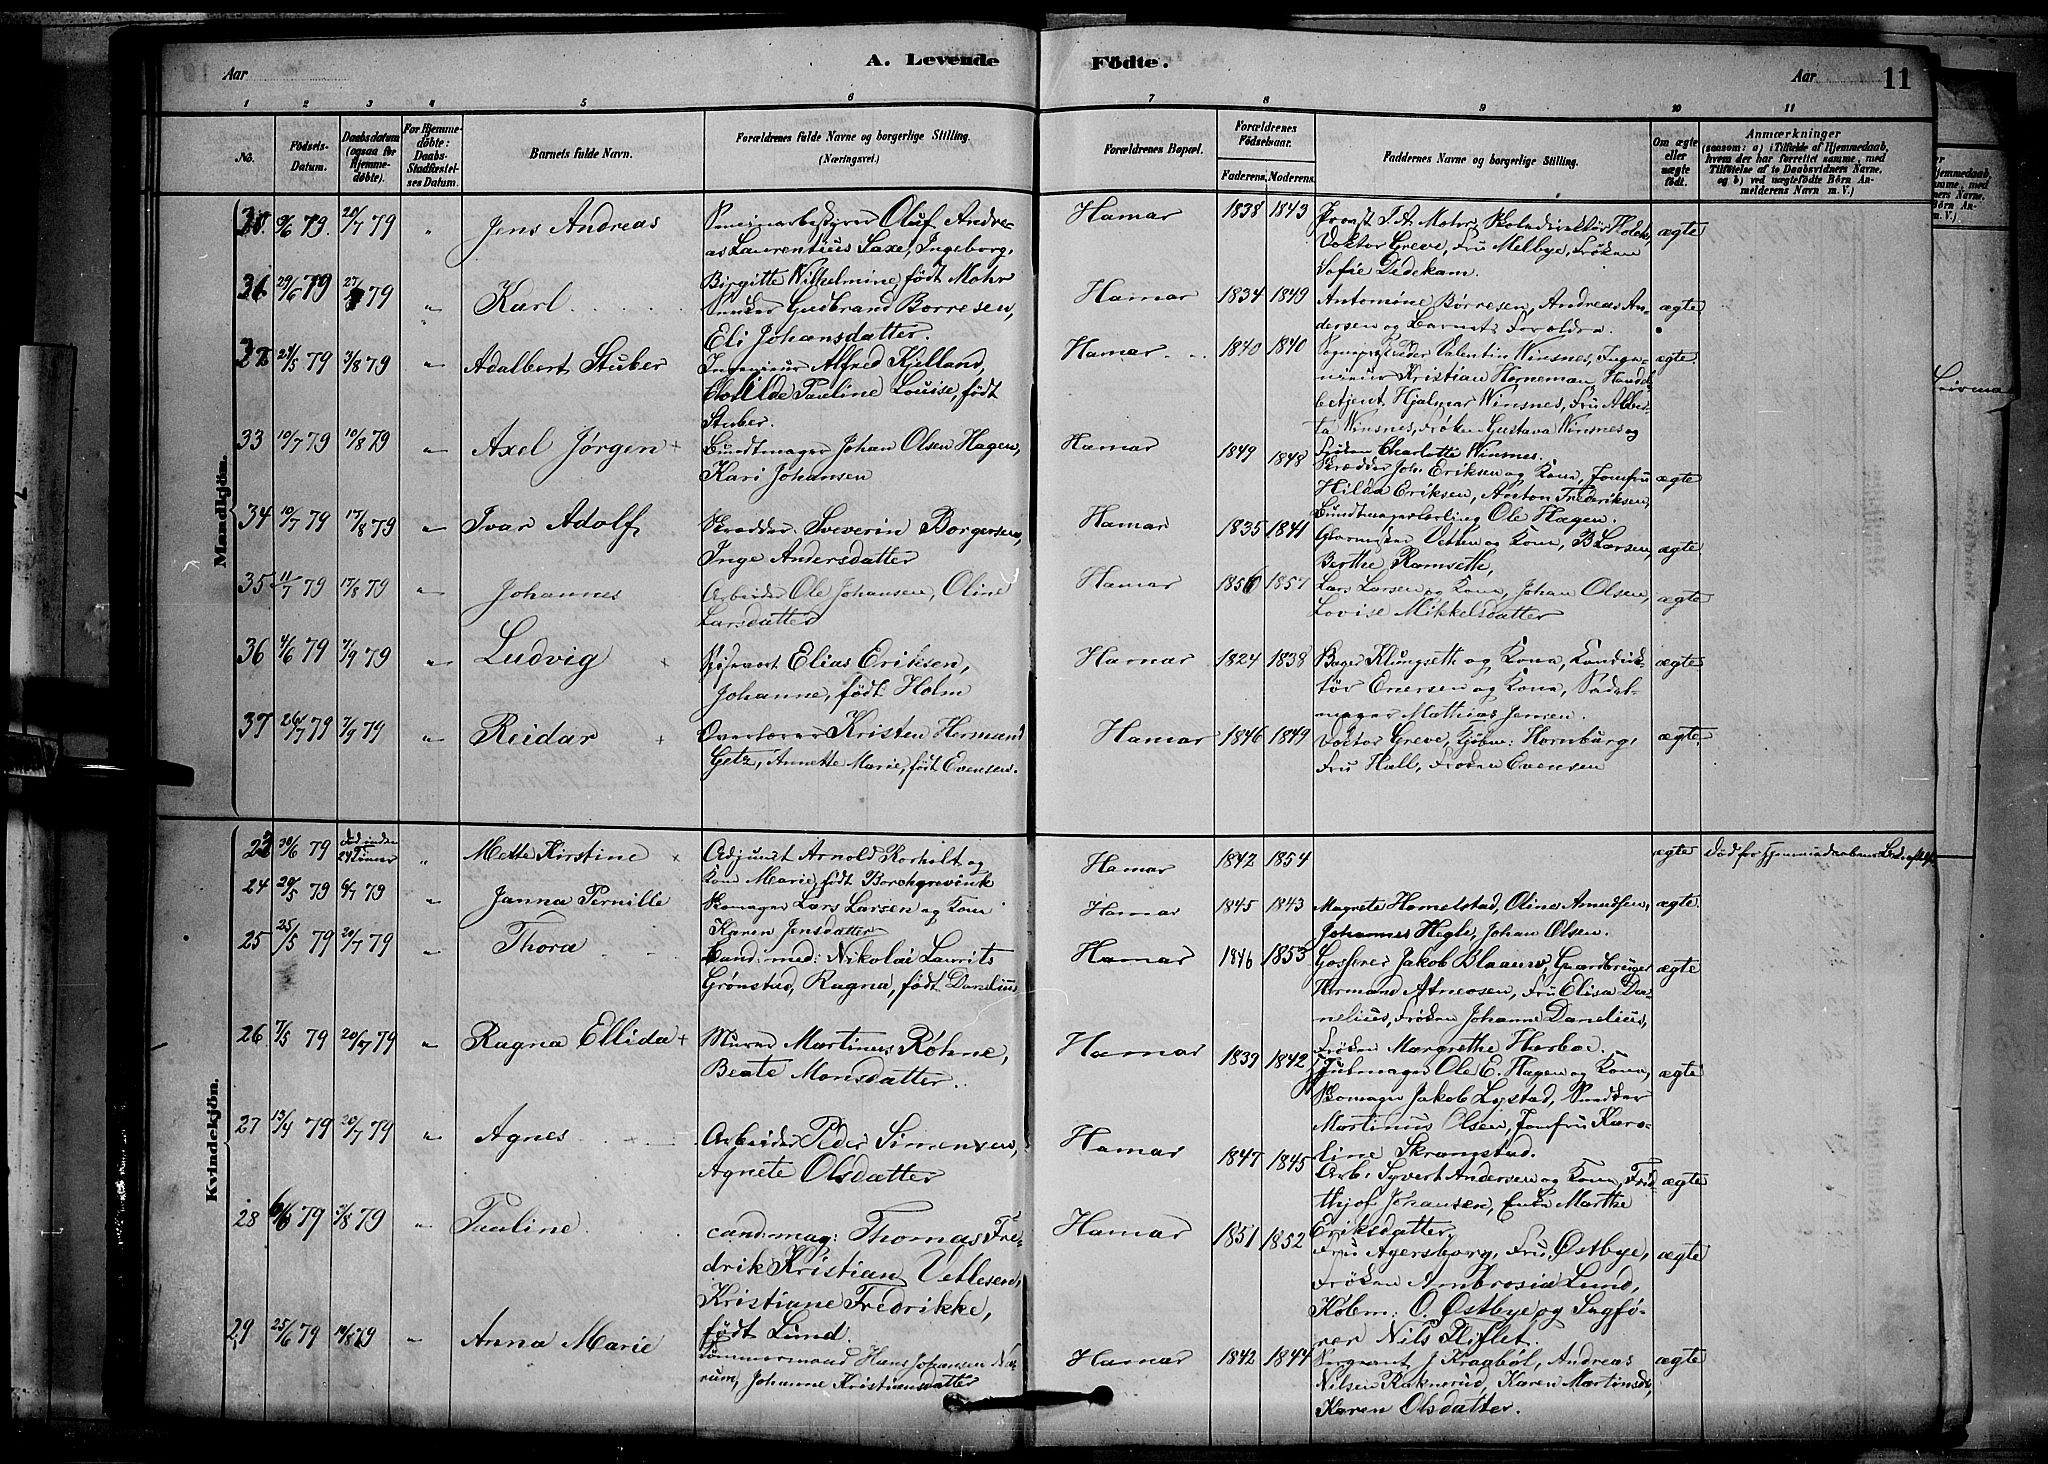 Aar
A. Levende
Fødte.
Aar
11
1 2 3 4 5 6 7 8 9 10 11
No.
Fødsels-
Datum.
Daabsdatum
(ogsaa for
Hjemme-
døbte).
For Hjemme-
døbte:
Daabs-
Stadfæstel-
ses Datum.
Barnets fulde Navn.
Forældrenes fulde Navne og borgerlige Stilling.
(Næringsvei.)
Forældrenes Bopæl.
Forældrenes
Fødselsaar.
Faderens. Moderens.
Faddernes Navne og borgerlige Stilling.
Om ægte
eller
uægte
født.
Anmærkninger
(saasom: a) i Tilfælde af Hjemmedaab,
hvem der har forrettet samme, med
Tilføielse af to Daabsvidners Navne,
og b) ved uægtefødte Børn An-
melderens Navn m. V.)
Mandkjön.
79. 20/7 79 " Jens Andreas
Seminarbestyrer Oluf Andre-
as Laurentius Saxe, Ingeborg,
Birgitte Wilhelmine, født Mohr
Hamar 1838 1843
Provst J. A. Mohr, Skoledirektør Holch,
Doktor Greve, Fru Melbye, Frøken
Sofie Dedekam.
ægte
31 29/6 79 27/7 79 " Karl
Snedker Gudbrand Borresen,
Eli Johansdatter.
Hamar 1834 1849
Antomine Børresen, Andreas An-
dersen og Barnets Forældre.
ægte
32 24/5 79 3/8 79 " Adalbert Stuber
Ingeniør Alfred Kjelland,
Clotilde Pauline Louise, født
Stuber.
Hamar 1840 1840
Sogneprest Peder Valentin Winsnes, Inge-
niør Kristian Horneman, Handels-
betjent Hjalmar Winsnes, Fru Alber-
ta Winsnes, Frøken Gustava Winsnes og
Frøken Charlotte Winsnes.
ægte
33 10/7 79 10/8 79 " Axel Jørgen +
Bundtmager Johan Olsen Hagen,
Kari Johansen
Hamar 1849 1848
Skrædder Joh. Eriksen og Kone, Jomfru
Hilda Eriksen, Anton Frederiksen,
Bundtmagerlærling Ole Hagen.
ægte
34 10/7 79 17/8 79 " Ivar Adolf
Skrædder Severin Borgersen,
Inge Andersdatter
Hamar 1835 1841
Glarmester Vetten og Kone, B Larsen,
Berthe Ramseth,
ægte
35 11/7 79 17/8 79 " Johannes
Arbeider Ole Johansen, Oline
Larsdatter
Hamar 1856 1857
Lars Larsen og Kone, Johan Olsen,
Lovise Mikkelsdatter
ægte
36 4/6 79 7/9 79 " Ludvig +
Elias Eriksen,
Johanne, født Holm
Hamar 1824 1838
Bager Klungseth og Kone, Konduk-
tør Enersen og Kone, Sadel-
mager Mathias Jensen.
ægte
37 26/7 79 7/9 79 " Reidar +
Overlærer Kristen Hermand
Getz, Annette Marie, født Evensen.
Hamar 1846 1849
Doktor Greve, Kjøbm: Hornburg,
Fru Hall, Frøken Evensen
ægte.
Kvindekjön.
23 30/6 79 død inden
24 Timer " Mette Kirstine +
Adjunkt Arnold Rørholt og
Kone Marie, født Borchgrevink
Hamar 1842 1854
ægte
Død før Hjemmedaaben
24 20/5 79 6/7 79 " Janna Pernille
Skomager Lars Larsen og Kone
Karen Jensdatter
Hamar 1845 1843
Magrete Hamelstad, Oline Amudsen,
Johannes Hegle, Johan Olsen.
ægte.
25 25/5 79 20/7 79 " Thora
Cand: med: Nikolai Laurits
Grønstad, Ragna, født Danelius
Hamar 1846 1853
Gosseier Jakob Blaauw, Gaardbruger
Hermand Arnesen, Fru Elisa Da-
nelius, Frøken Johanne Danelius,
Frøken Margrethe Harboe.
ægte
26 7/5 79 20/7 79 " Ragna Ellida +
Murer Martinus Røhne,
Beate Monsdatter.
Hamar 1839 1842
Hjulmager Ole E. Hagen og Kone,
Skomager Jakob Lystad, Snedker
Martinus Olsen, Jomfru Karo-
line Skramstad.
ægte
27 13/4 79 20/7 79 " Agnes +
Arbeider Peder Simensen,
Agnete Olsdatter
Hamar 1847 1845
Arb: Syvert Andersen og Kone, Frid-
thjof Johansen, Enke Marthe
Eriksdatter.
ægte
28 6/6 79 3/8 79 " Pauline
cand: mag: Thomas Fre-
drik Kristian Vetlesen,
Kristiane Fredrikke,
født Lund.
Hamar 1851 1852
Fru Agersborg, Fru Østbye,
Frøken Ambrosia Lund,
Købm: O. Østbye og Sagfø-
rer Nils Fliflet.
ægte
29 25/6 79 10/8 79 " Anna Marie
Tømmermand Hans Johansen
rum, Johanne Kristiansdatter
Hamar 1842 1844
Sergeant J Kraabøl, Andreas
Nilsen Raknerud, Karen Martinsd.,
Karen Olsdatter.
ægte